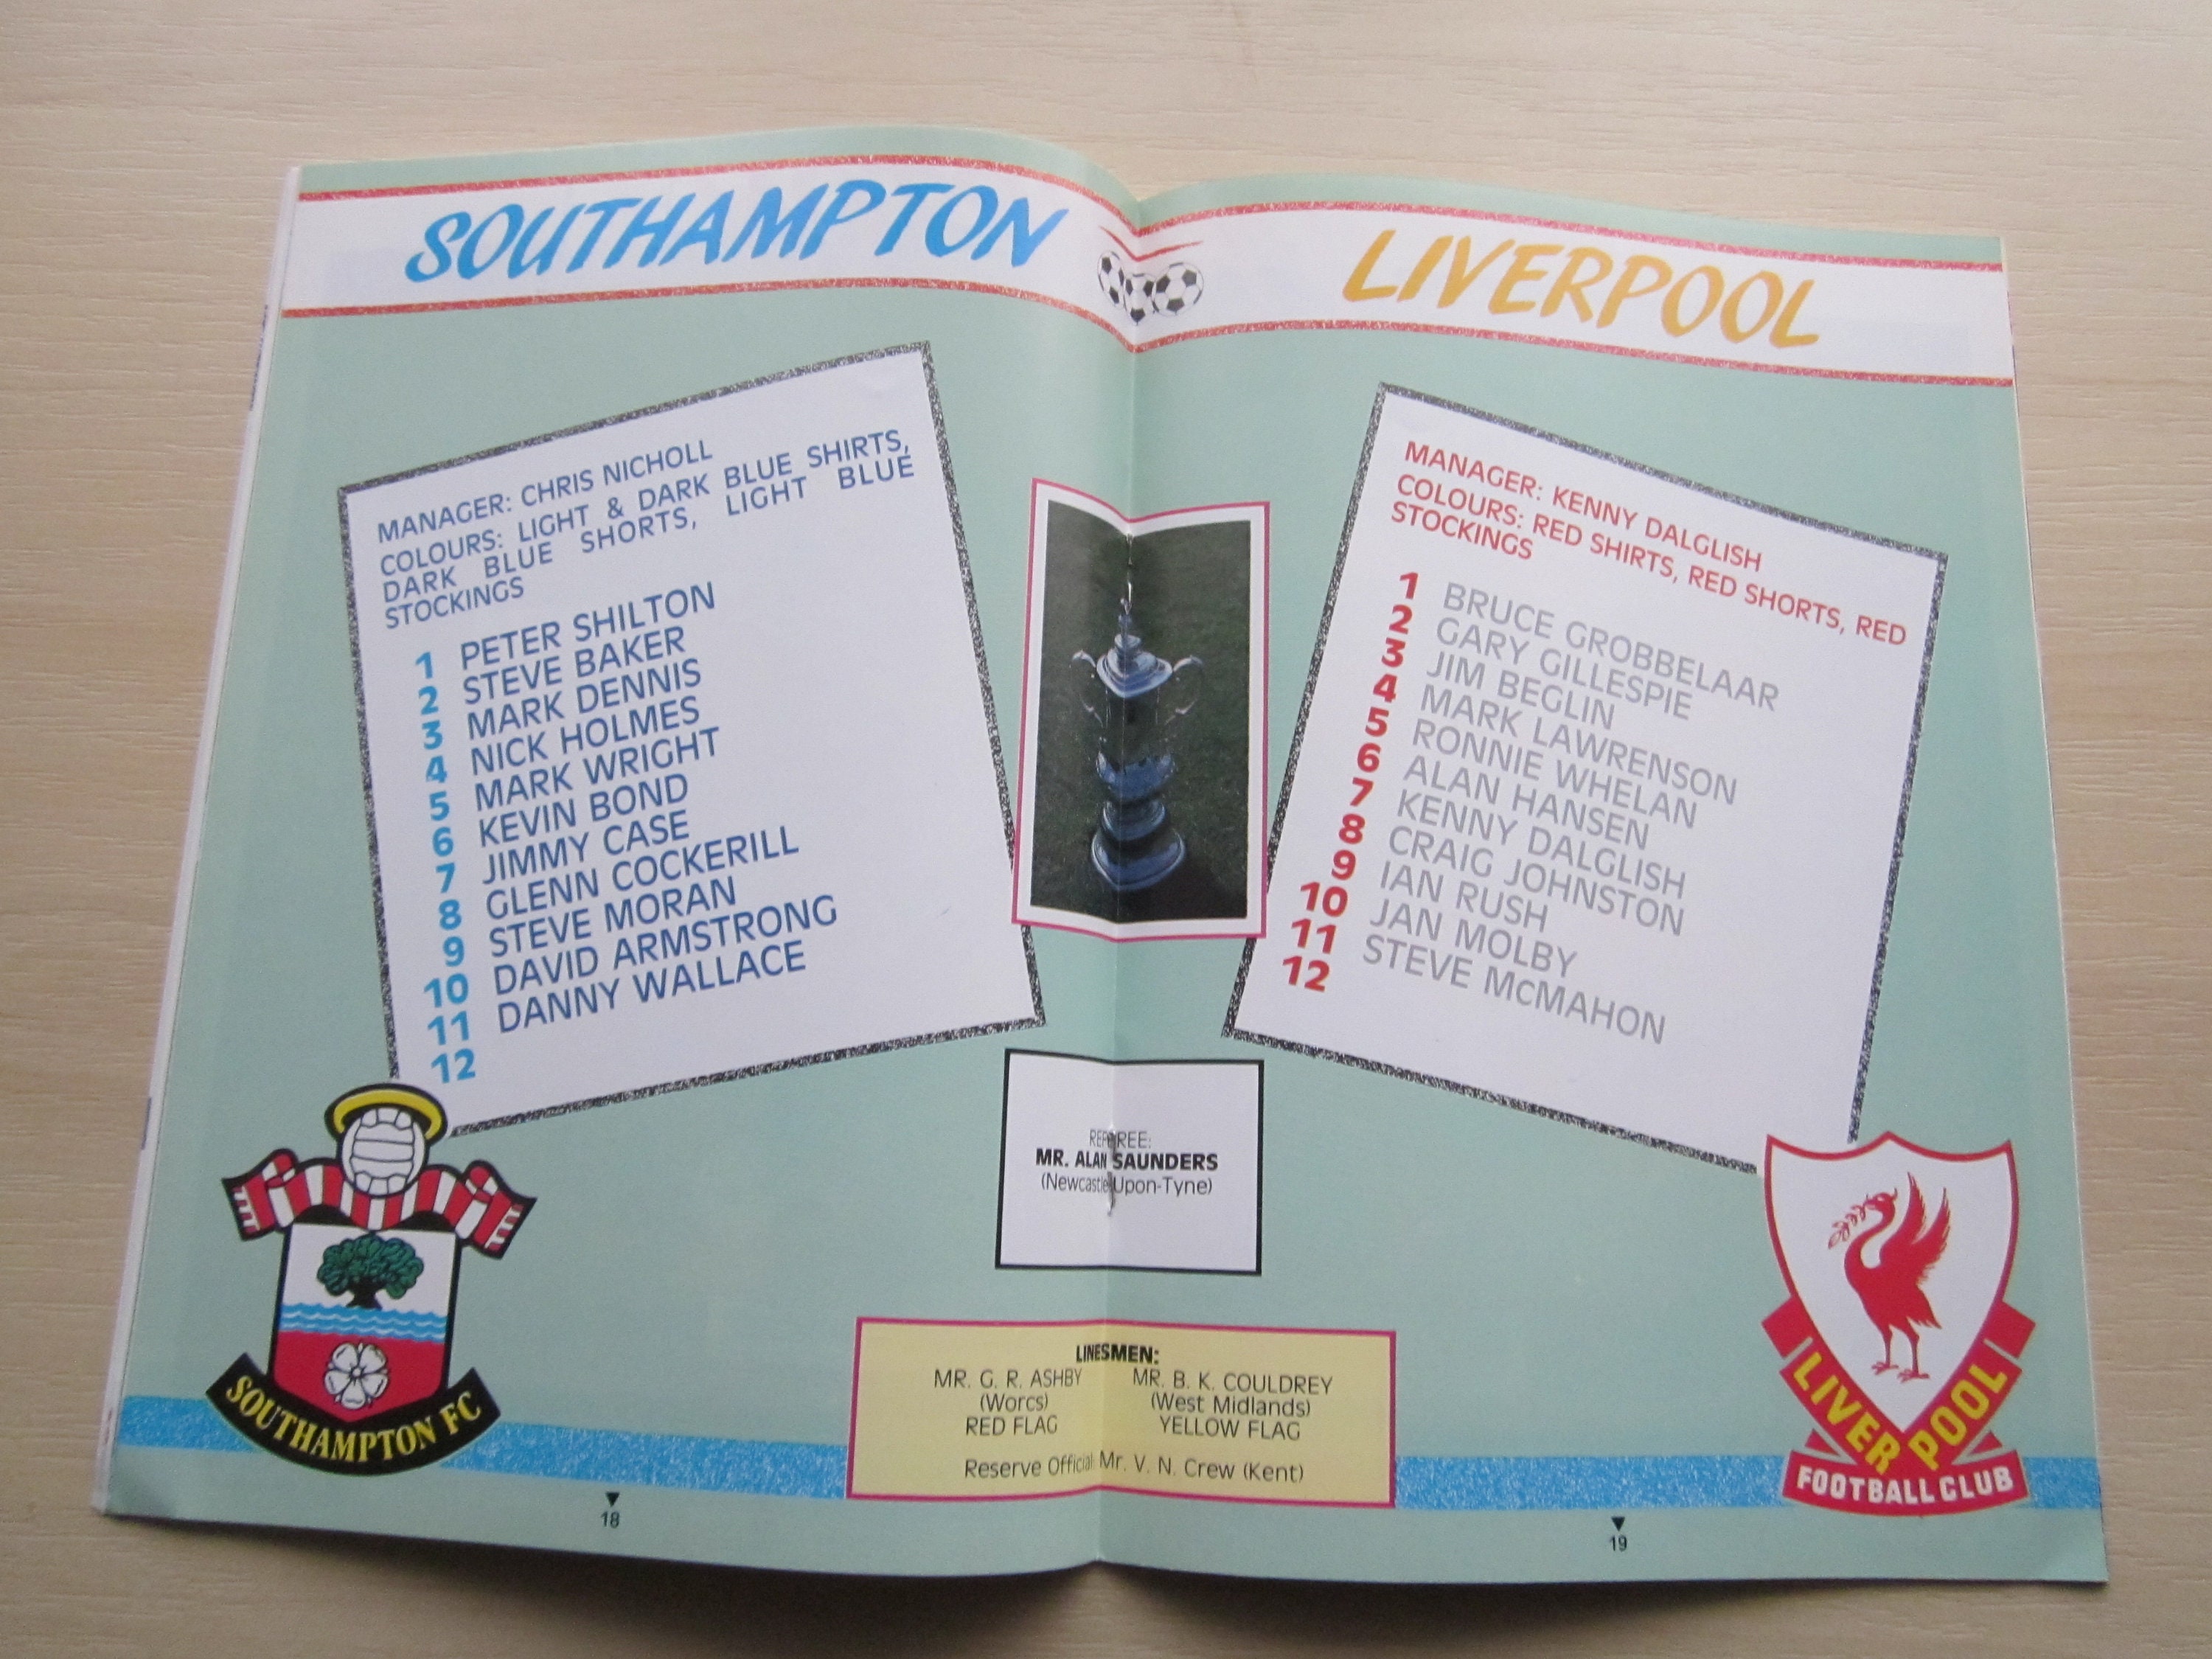 SOUTHAMPTON
MANAGER: CHRIS NICHOLL
COLOURS: LIGHT & DARK BLUE SHIRTS,
DARK BLUE SHORTS, LIGHT BLUE
STOCKINGS
1 PETER SHILTON
2 STEVE BAKER
3 MARK DENNIS
4 NICK HOLMES
5 MARK WRIGHT
6 KEVIN BOND
7 JIMMY CASE
8 GLENN COCKERILL
9 STEVE MORAN
10 DAVID ARMSTRONG
11 DANNY WALLACE
12
SOUTHAMPTON FC
18
LIVERPOOL
MANAGER: KENNY DALGLISH
COLOURS: RED SHIRTS, RED SHORTS, RED
STOCKINGS
1 BRUCE GROBBELAAR
2 GARY GILLESPIE
3 JIM BEGLIN
4 MARK LAWRENSON
5 RONNIE WHELAN
6 ALAN HANSEN
7 KENNY DALGLISH
8 CRAIG JOHNSTON
9 IAN RUSH
10 JAN MOLBY
11 STEVE McMAHON
12
REFEREE:
MR. ALAN SAUNDERS
(Newcastle Upon-Tyne)
LINESMEN:
MR. G. R. ASHBY MR. B. K. COULDREY
(Worcs) (West Midlands)
RED FLAG YELLOW FLAG
Reserve Official: Mr. V. N. Crew (Kent)
LIVERPOOL
FOOTBALL CLUB
19